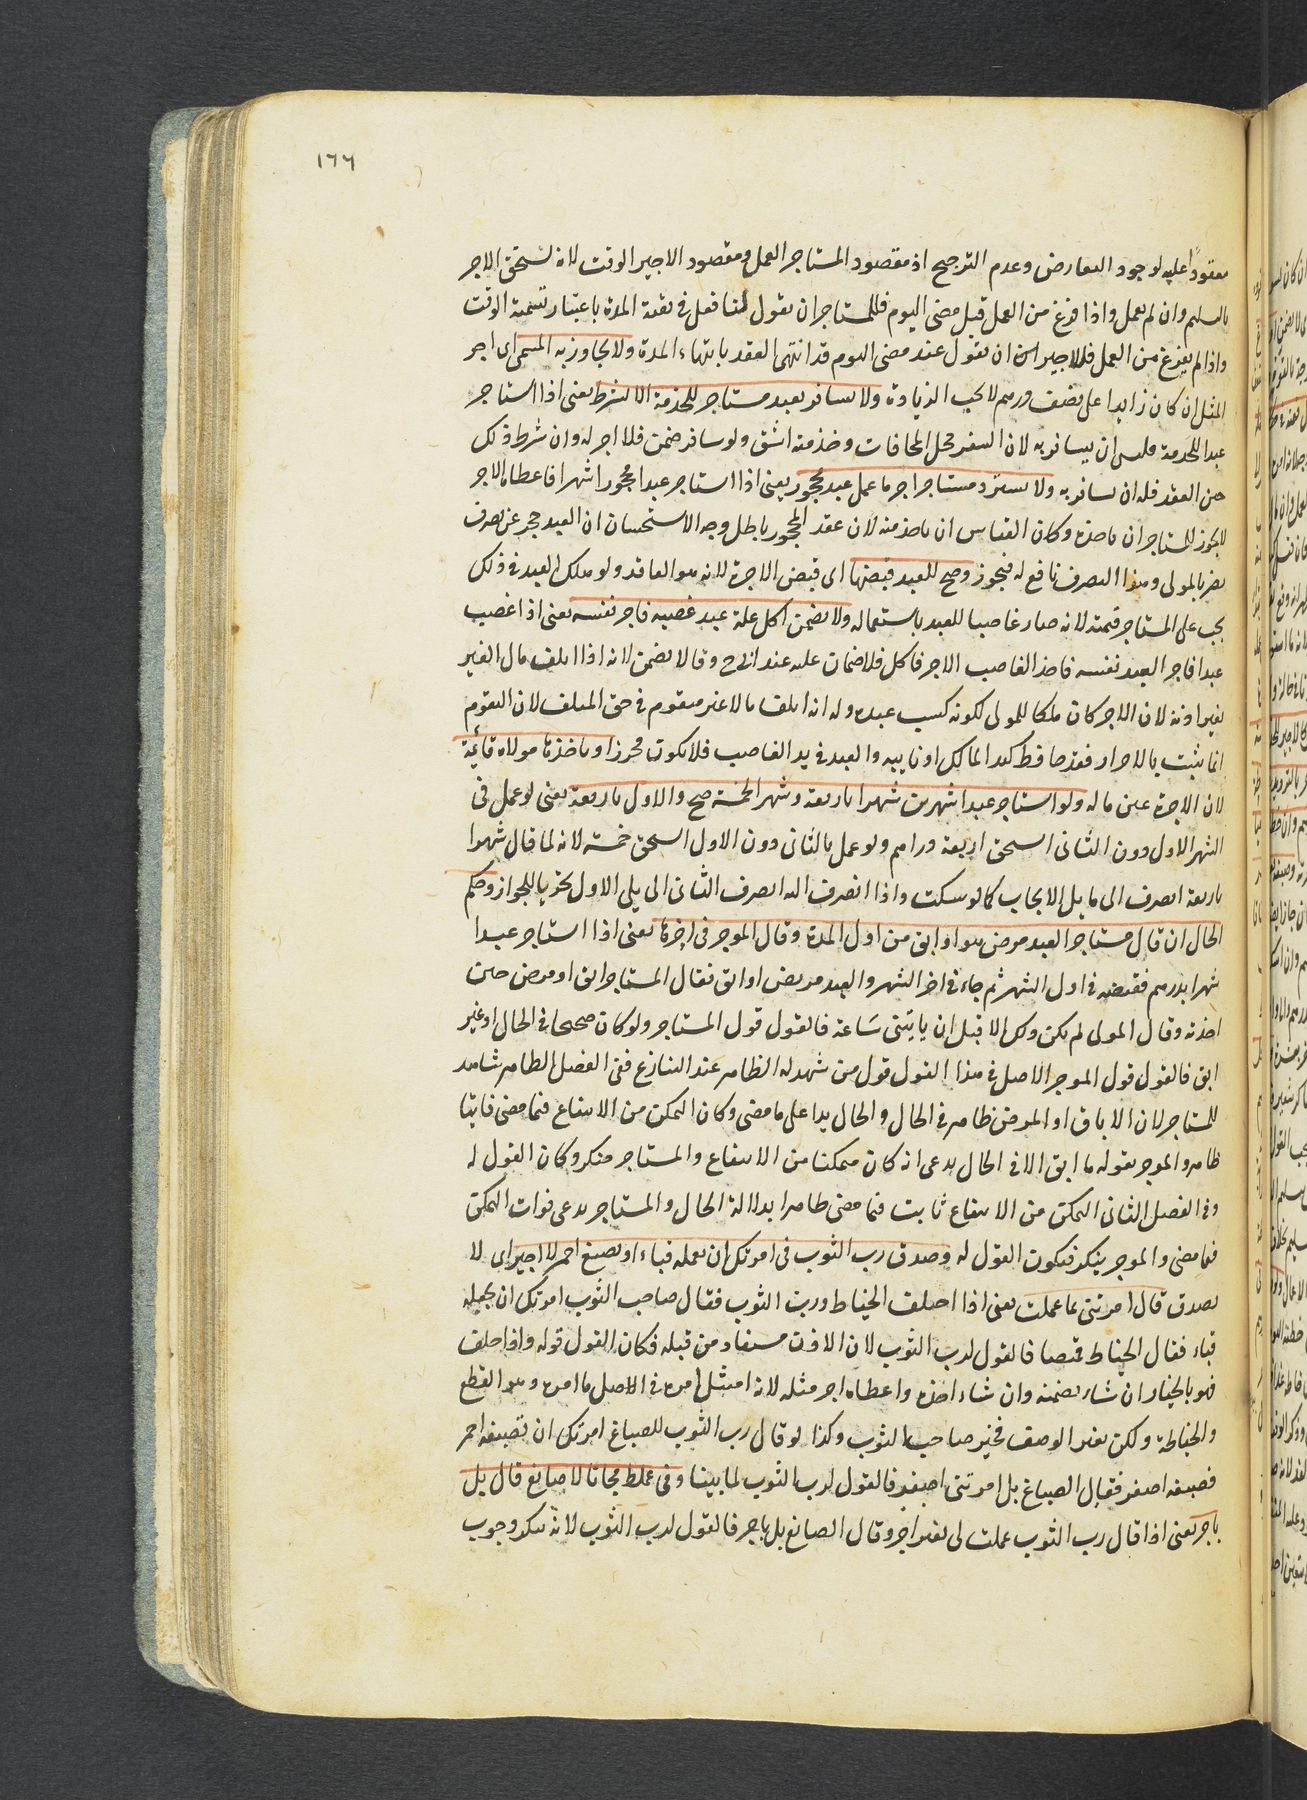 ١٦٦
معقودا عليه لوجود التعارض وعدم الترجيح اذ مقصود المستاجر العمل ومقصود الاجير الوقت لانه يستحق الاجر
بالتسليم وان لم يعمل واذا فرغ من العمل قبل مضى اليوم فللمستاجر ان يقول منافعك في بقية المدة باعتبار تسمية الوقت
واذا لم يفرغ من العمل فللاجير ان يقول عند مضى اليوم قد انتهى العقد بانتهاء المدة ولا يجاوز به المسمى اى اجر
المثل ان كان زايدا على نصف درهم لا يجب الزيادة ولا يسافر بعبد مستاجر للخدمة الا بشرط يعنى اذا استاجر
عبدا للخدمة فليس ان يسافر به لان السفر محل المخافات وخدمته اشق ولو سافر ضمن فلا اجر له وان شرط ذلك
حين العقد فله ان يسافر به ولا يسترد مستاجر اجر ما عمل عبد محجور يعنى اذا استاجر عبدا محجورا شهرا فاعطاه الاجر
لا يجوز للمستاجر ان ياخذه وكان القياس ان ياخذ منه لان عقد المحجور باطل وجه الاستحسان ان العبد حجر عن تصرف
يضر بالمولى وهذا التصرف نافع له فيجوز وصح للعبد قبضها اى قبض الاجرة لانه هو العاقد ولو هلك العبد في ذلك
يجب على المستاجر قيمته لانه صار غاصبا للعبد باستعماله ولا يضمن اكل غلة عبد غصبه فاجر نفسه يعنى اذا غصب
عبدا فاجر العبد نفسه فاخذ الغاصب الاجر فاكل فلا ضمان عليه عند ابي ح وقالا يضمن لانه اذا اتلف مال الغير
بغير اذنه لان الاجر كان ملكا للمولى لكونه كسب عبده وله انه اتلف مالا غير متقوم في حق المتلف لان التقوم
انما يثبت بالاحراز فقد حافظ كيد المالك او نايبه والعبد في يد الغاصب فلا يكون محرزا وياخذها مولاه قائمة
لان الاجرة عين ماله ولو استاجر عبدا شهرين شهرا باربعة وشهرا بخمسة صح والاول باربعة يعنى لو عمل في
الشهر الاول دون الثانى استحق اربعة دراهم ولو عمل بالثانى دون الاول استحق خمسة لانه لما قال شهرا
باربعة انصرف الى ما يلى الايجاب كما لو سكت واذا انصرف اليه انصرف الثانى الى يلى الاول تحريا للجواز وحكم
الحال ان قال مستاجر العبد مرض هو او ابق من اول المدة وقال الموجر في اخرها يعنى اذا استاجر عبدا
شهرا بدرهم فقبضه في اول الشهر ثم جاء في اخر الشهر والعبد مريض او ابق فقال المستاجر ابق او مرض حين
اخذته وقال المولى لم يكن ذلك الا قبل ان ياتينى ساعة فالقول قول المستاجر ولو كان صحيحا في الحال او غير
ابق فالقول قول الموجر الاصل في هذا القول قول من شهد له الظاهر عند التنازع ففى الفصل الظاهر شاهد
للمستاجر لان الاباق او المرض ظاهر في الحال والحال يدل على ما مضى وكان التمكن من الانتفاع فيما مضى فايتا
ظاهرو الموجر بقوله ما ابق الا في الحال يدعى انه كان متمكنا من الانتفاع والمستاجر منكر وكان القول له
وفى الفصل الثانى التمكن من الانتفاع ثابت فيما مضى ظاهرا بدلالة الحال والمستاجر يدعى فوات التمكن
فيما مضى والموجر ينكر فيكون القول له وصدق رب الثوب في امرتك ان تعمله قباء او تصبغ احمر لا اجير اى لا
يصدق قال امرتنى بما عملت يعنى اذا اختلف الخياط ورب الثوب فقال صاحب الثوب امرتك ان تجعله
قباء فقال الخياط قميصا فالقول لرب الثوب لان الاذن مستفاد من قبله فكان القول قوله واذا حلف
فهو بالخيار ان شاء يضمنه وان شاء اخذه واعطاه اجر مثله لانه امتثل امره في الاصل ما امره وهو القطع
والخياطة ولكن تغير الوصف فخير صاحب الثوب وكذا لو قال رب الثوب للصباغ امرتك ان تصبغه احمر
فصبغه اصفر فقال الصباغ بل امرتنى اصفر فالقول لرب الثوب لما بينا وفى عملت مجانا لا صانع قال بل
باجر يعنى اذا قال رب الثوب عملت لى بغير اجر وقال الصانع بل باجر فالقول لرب الثوب لانه ينكر وجوب